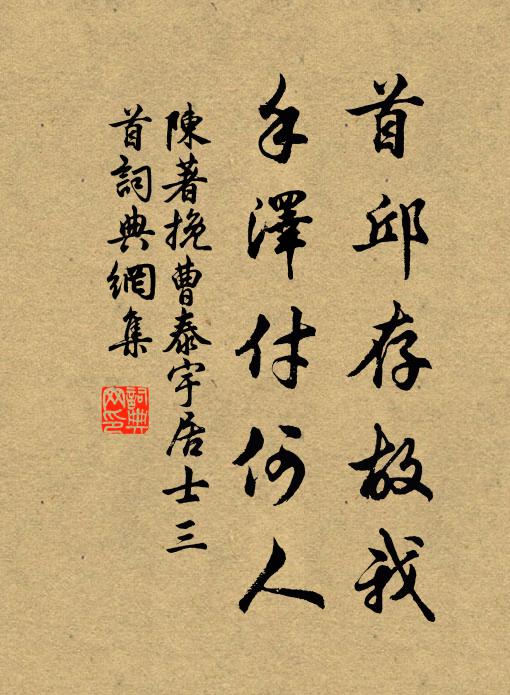 首邱存故我
手澤付何人
陳著挽曹泰宇居士三
首詞典網集
詞典網印